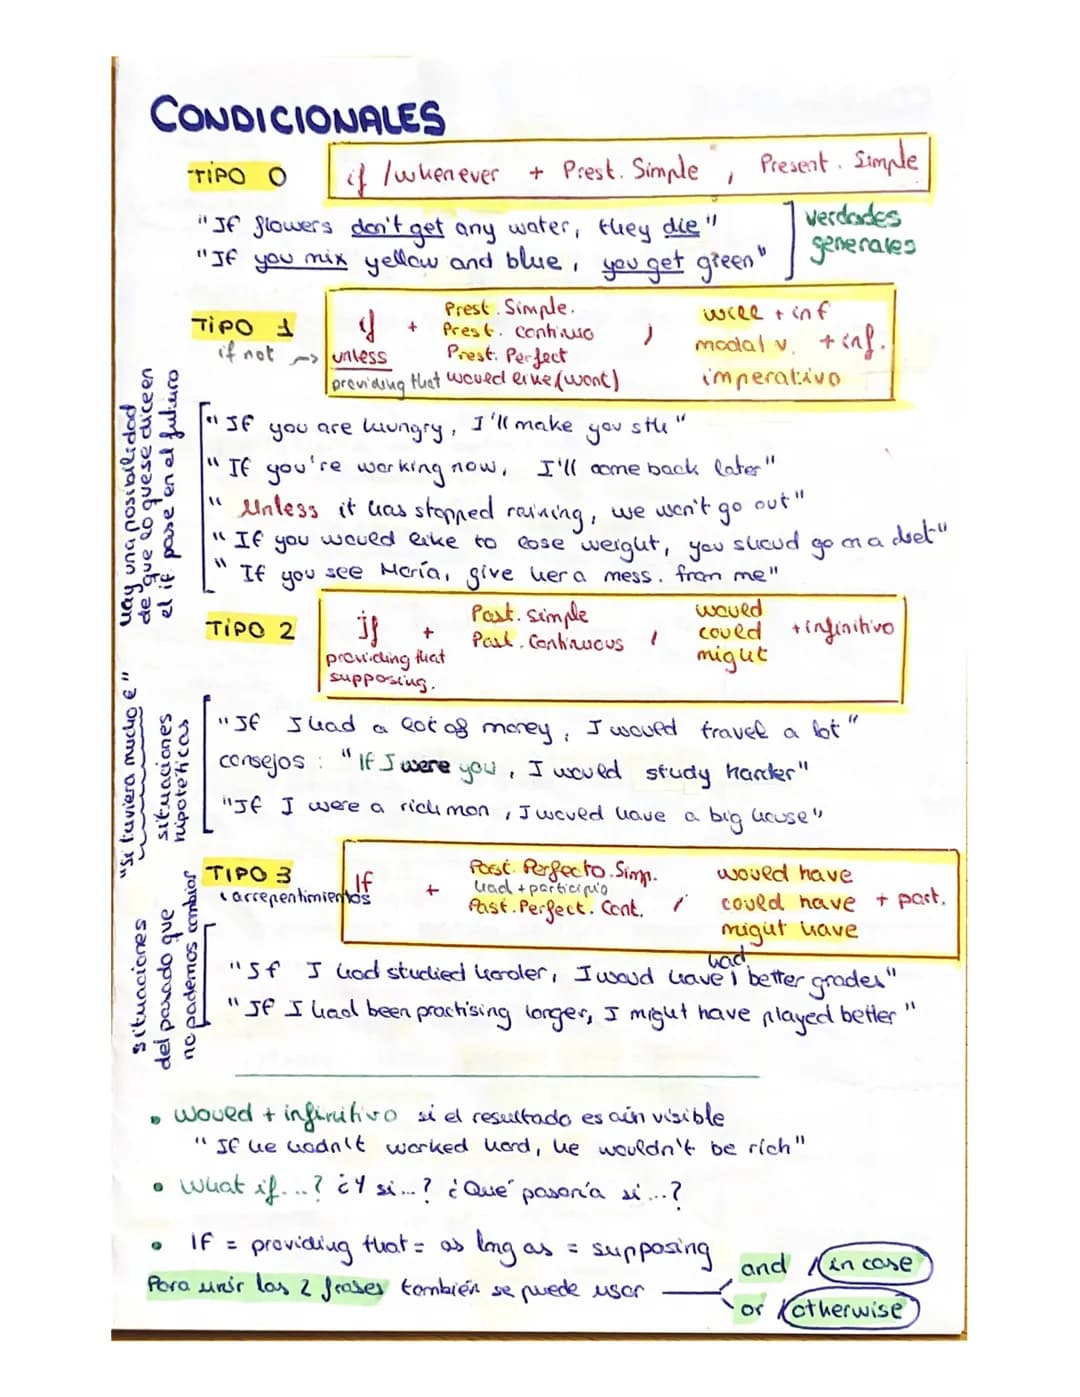 CONDICIONALES
TIPO 0
if / whenever + Prest. Simple , Present. Simple
"If flowers don't get any water, they die"
"If you mix yellow and blue, you get green"
verdades
generales
TIPO 1
if not → unless
if +
providing that
Prest. Simple.
Prest. continuo
Prest. Perfect
would like (want)
,
will + inf
modal v. + inf.
imperativo
hay una posibilidad
de que lo que se dice en
el if pase en el futuro
"If you are hungry, I'll make you sth"
"If you're working now, I'll come back later"
"Unless it has stopped raining, we won't go out"
"If you would like to lose weight, you shoud go on a diet"
"If you see María, give her a mess. from me"
TIPO 2
if +
providing that
supposing.
Past. Simple
Past. Continuous
,
would
could + infinitivo
might
"Si tuviera mucho €"
situaciones
hipotéticas
"If I had a lot of money, I would travel a lot"
consejos: "If I were you, I would study harder"
"If I were a rich man, I would have a big house"
TIPO 3
arrepentimientos
If +
Past. Perfecto. Simp.
had + participio
Past. Perfect. Cont.
,
would have
could have + part.
might have
situaciones
del pasado que
no podemos cambiar
"If I had studied harder, I woud have had better grades"
"If I had been practising longer, I might have played better"
• would + infinitivo si el resultado es aún visible
"If he hadn't worked hard, he wouldn't be rich"
• What if...? ¿Y si...? ¿Qué pasaría si...?
• If = providing that = as long as = supposing
Para unir las 2 frases también se puede usar
and / in case
or / otherwise